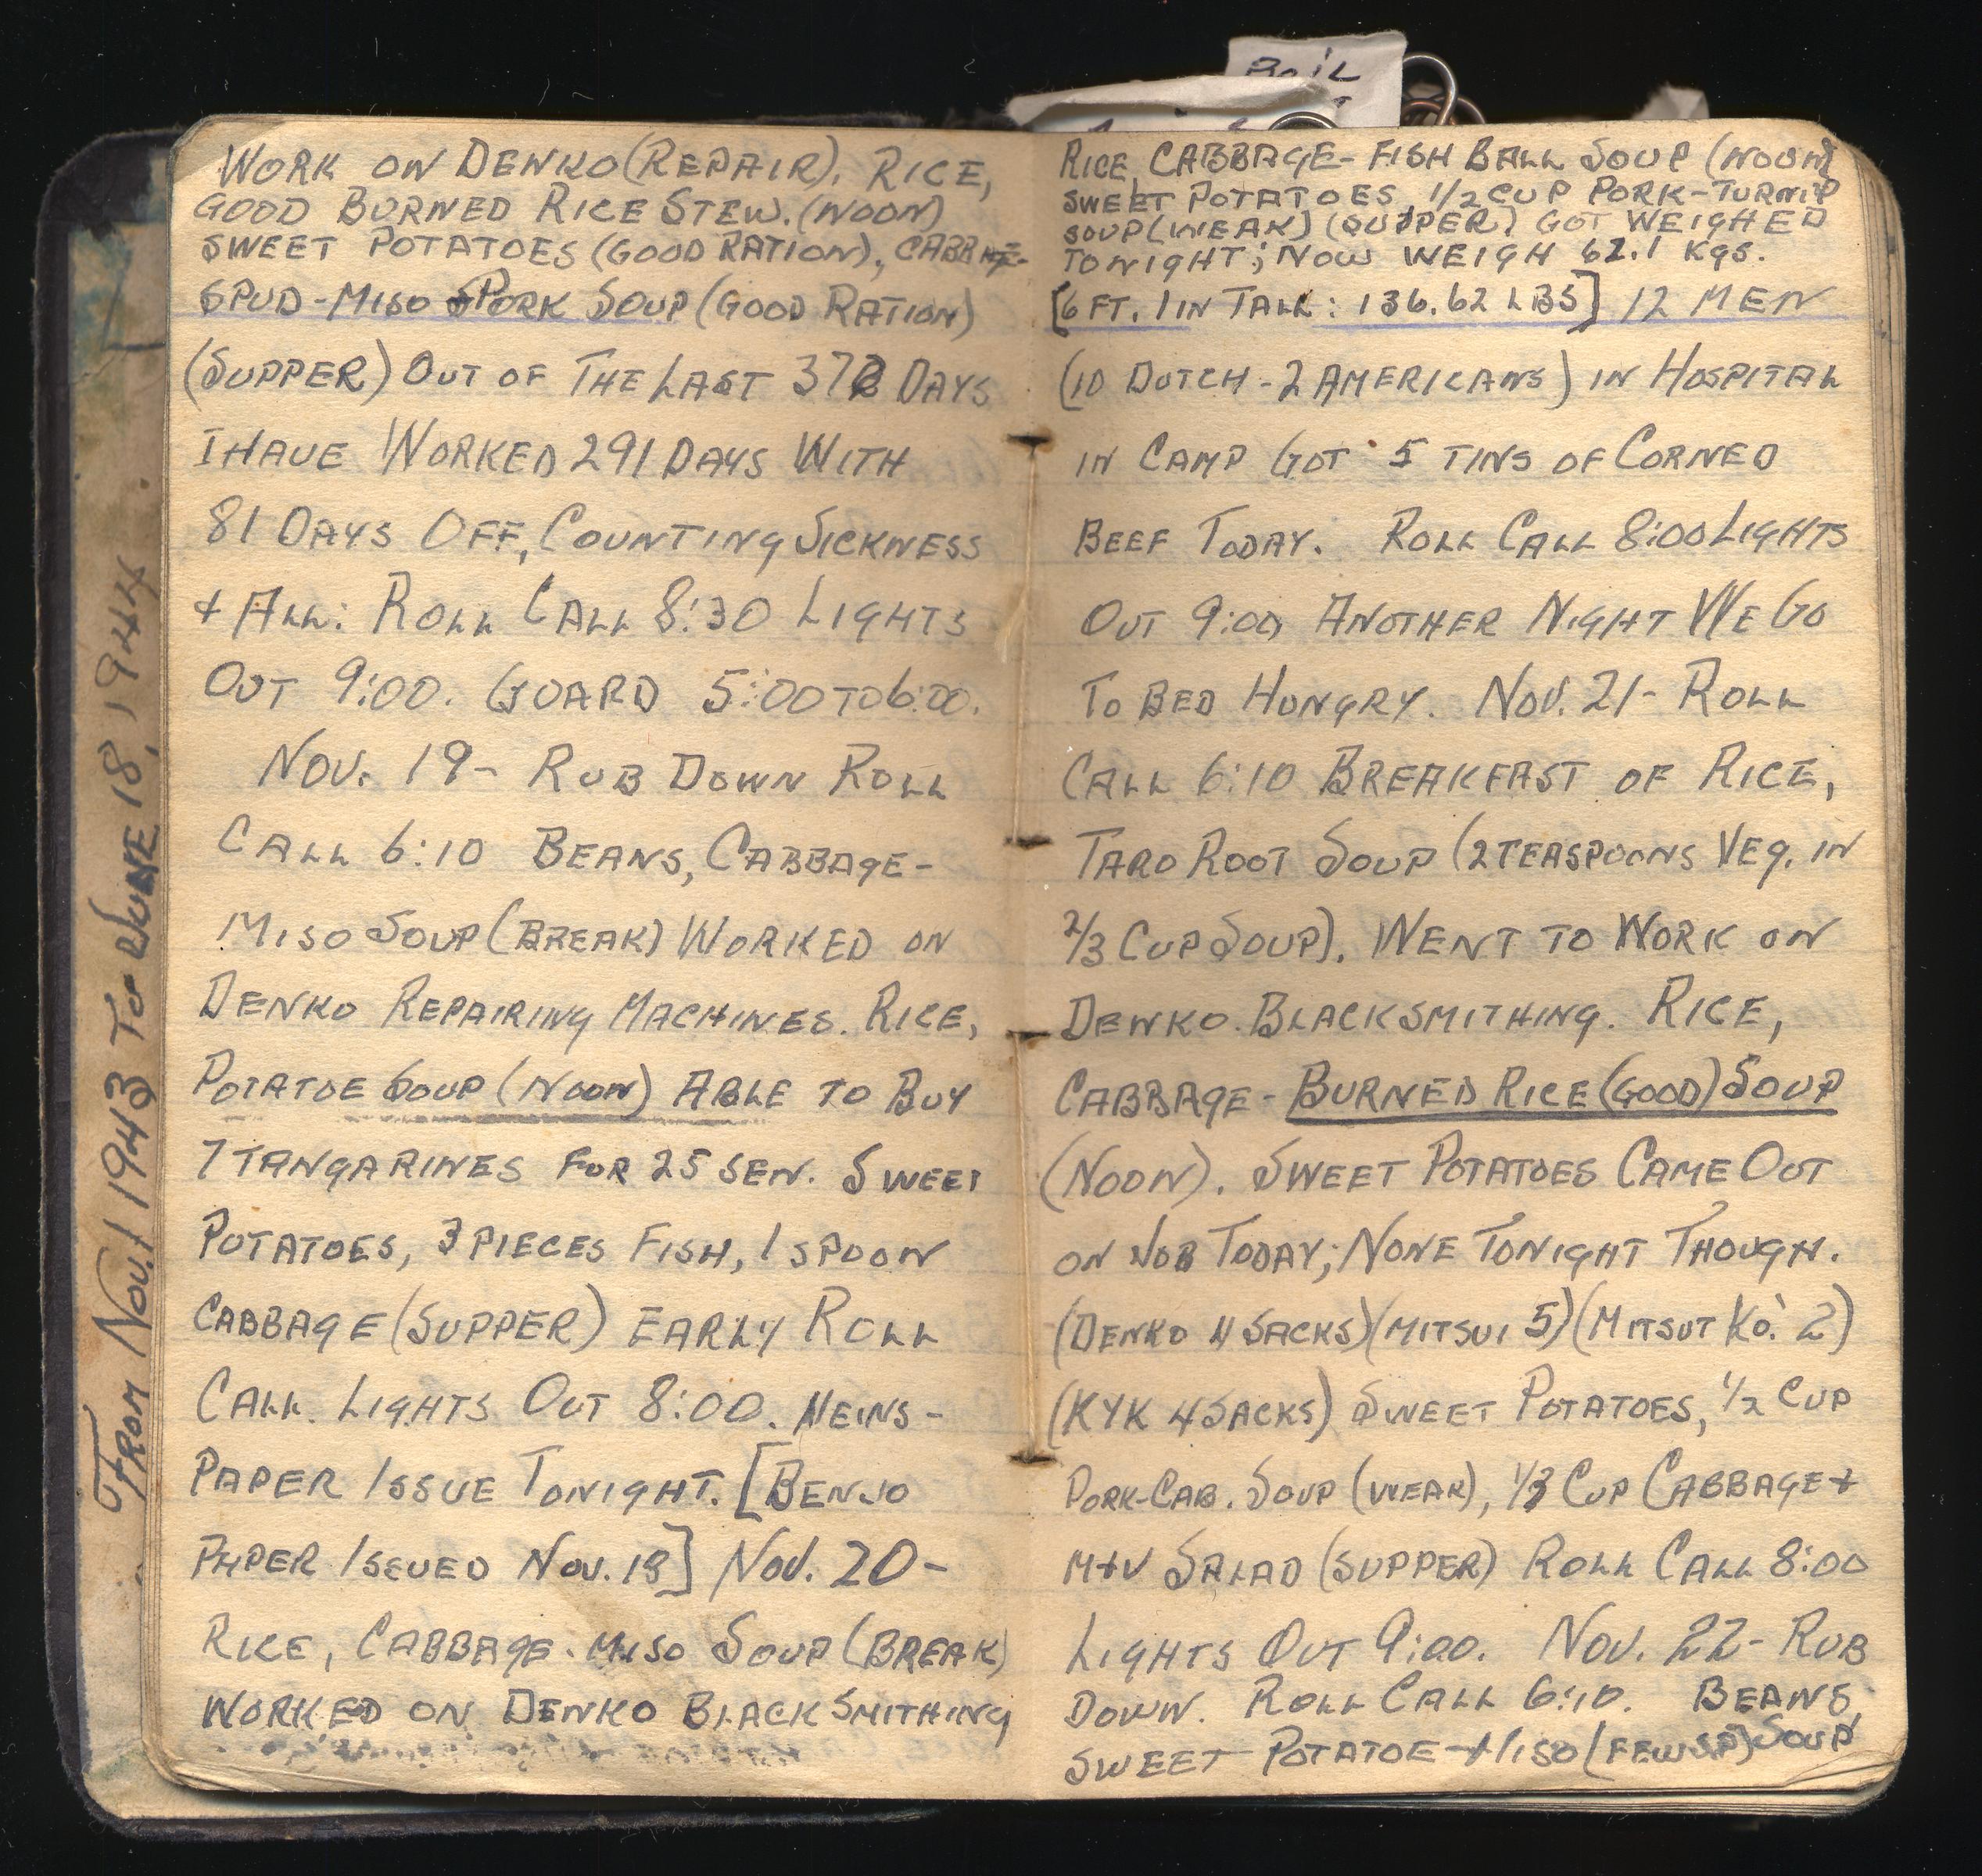 Boil
From Nov. 1 1943 To June 18, 1944
WORK ON DENKO (REPAIR). RICE,
GOOD BURNED RICE STEW. (NOON)
SWEET POTATOES (GOOD RATION), CABBAGE-
SPUD-MISO PORK SOUP (GOOD RATION)
(SUPPER) OUT OF THE LAST 372 DAYS
I HAVE WORKED 291 DAYS WITH
81 DAYS OFF, COUNTING SICKNESS
+ ALL: ROLL CALL 8:30 LIGHTS
OUT 9:00. GUARD 5:00 TO 6:00.
NOV. 19- RUB DOWN ROLL
CALL 6:10 BEANS, CABBAGE-
MISO SOUP (BREAK) WORKED ON
DENKO REPAIRING MACHINES. RICE,
POTATOE SOUP (NOON) ABLE TO BUY
7 TANGARINES FOR 25 SEN. SWEET
POTATOES, 3 PIECES FISH, 1 SPOON
CABBAGE (SUPPER) EARLY ROLL
CALL. LIGHTS OUT 8:00. NEWS-
PAPER ISSUE TONIGHT. [BENJO
PAPER ISSUED NOV. 18] NOV. 20-
RICE, CABBAGE-MISO SOUP (BREAK)
WORKED ON DENKO BLACKSMITHING
RICE, CABBAGE-FISH BALL SOUP (NOON)
SWEET POTATOES, 1/2 CUP PORK-TURNIP
SOUP (WEAK) (SUPPER) GOT WEIGHED
TONIGHT; NOW WEIGH 62.1 KGS.
[6 FT. 1 IN TALL: 136.62 LBS] 12 MEN
(10 DUTCH-2 AMERICANS) IN HOSPITAL
IN CAMP GOT 5 TINS OF CORNED
BEEF TODAY. ROLL CALL 8:00 LIGHTS
OUT 9:00 ANOTHER NIGHT WE GO
TO BED HUNGRY. NOV. 21- ROLL
CALL 6:10 BREAKFAST OF RICE,
TARO ROOT SOUP (2 TEASPOONS VEG. IN
2/3 CUP SOUP). WENT TO WORK ON
DENKO. BLACKSMITHING. RICE,
CABBAGE-BURNED RICE (GOOD) SOUP
(NOON). SWEET POTATOES CAME OUT
ON JOB TODAY; NONE TONIGHT THOUGH.
(DENKO 4 SACKS) (MITSUI 5) (MITSUI KO. 2)
(KYK 4 SACKS) SWEET POTATOES, 1/2 CUP
PORK-CAB. SOUP (WEAK), 1/3 CUP CABBAGE +
M+V SALAD (SUPPER) ROLL CALL 8:00
LIGHTS OUT 9:00. NOV. 22- RUB
DOWN. ROLL CALL 6:10. BEANS,
SWEET POTATOE-MISO (FEW SP) SOUP